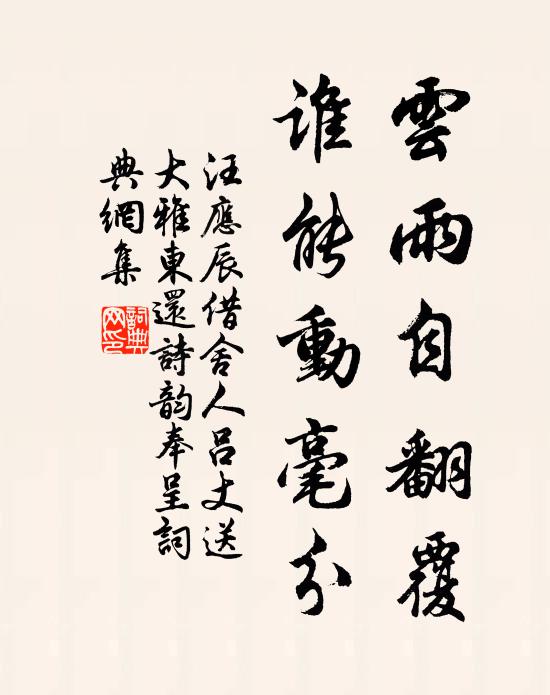 雲雨自翻覆
誰能動毫分
汪應辰借舍人呂丈送
大雅東還詩韵奉呈詞
典網集
詞典
网印